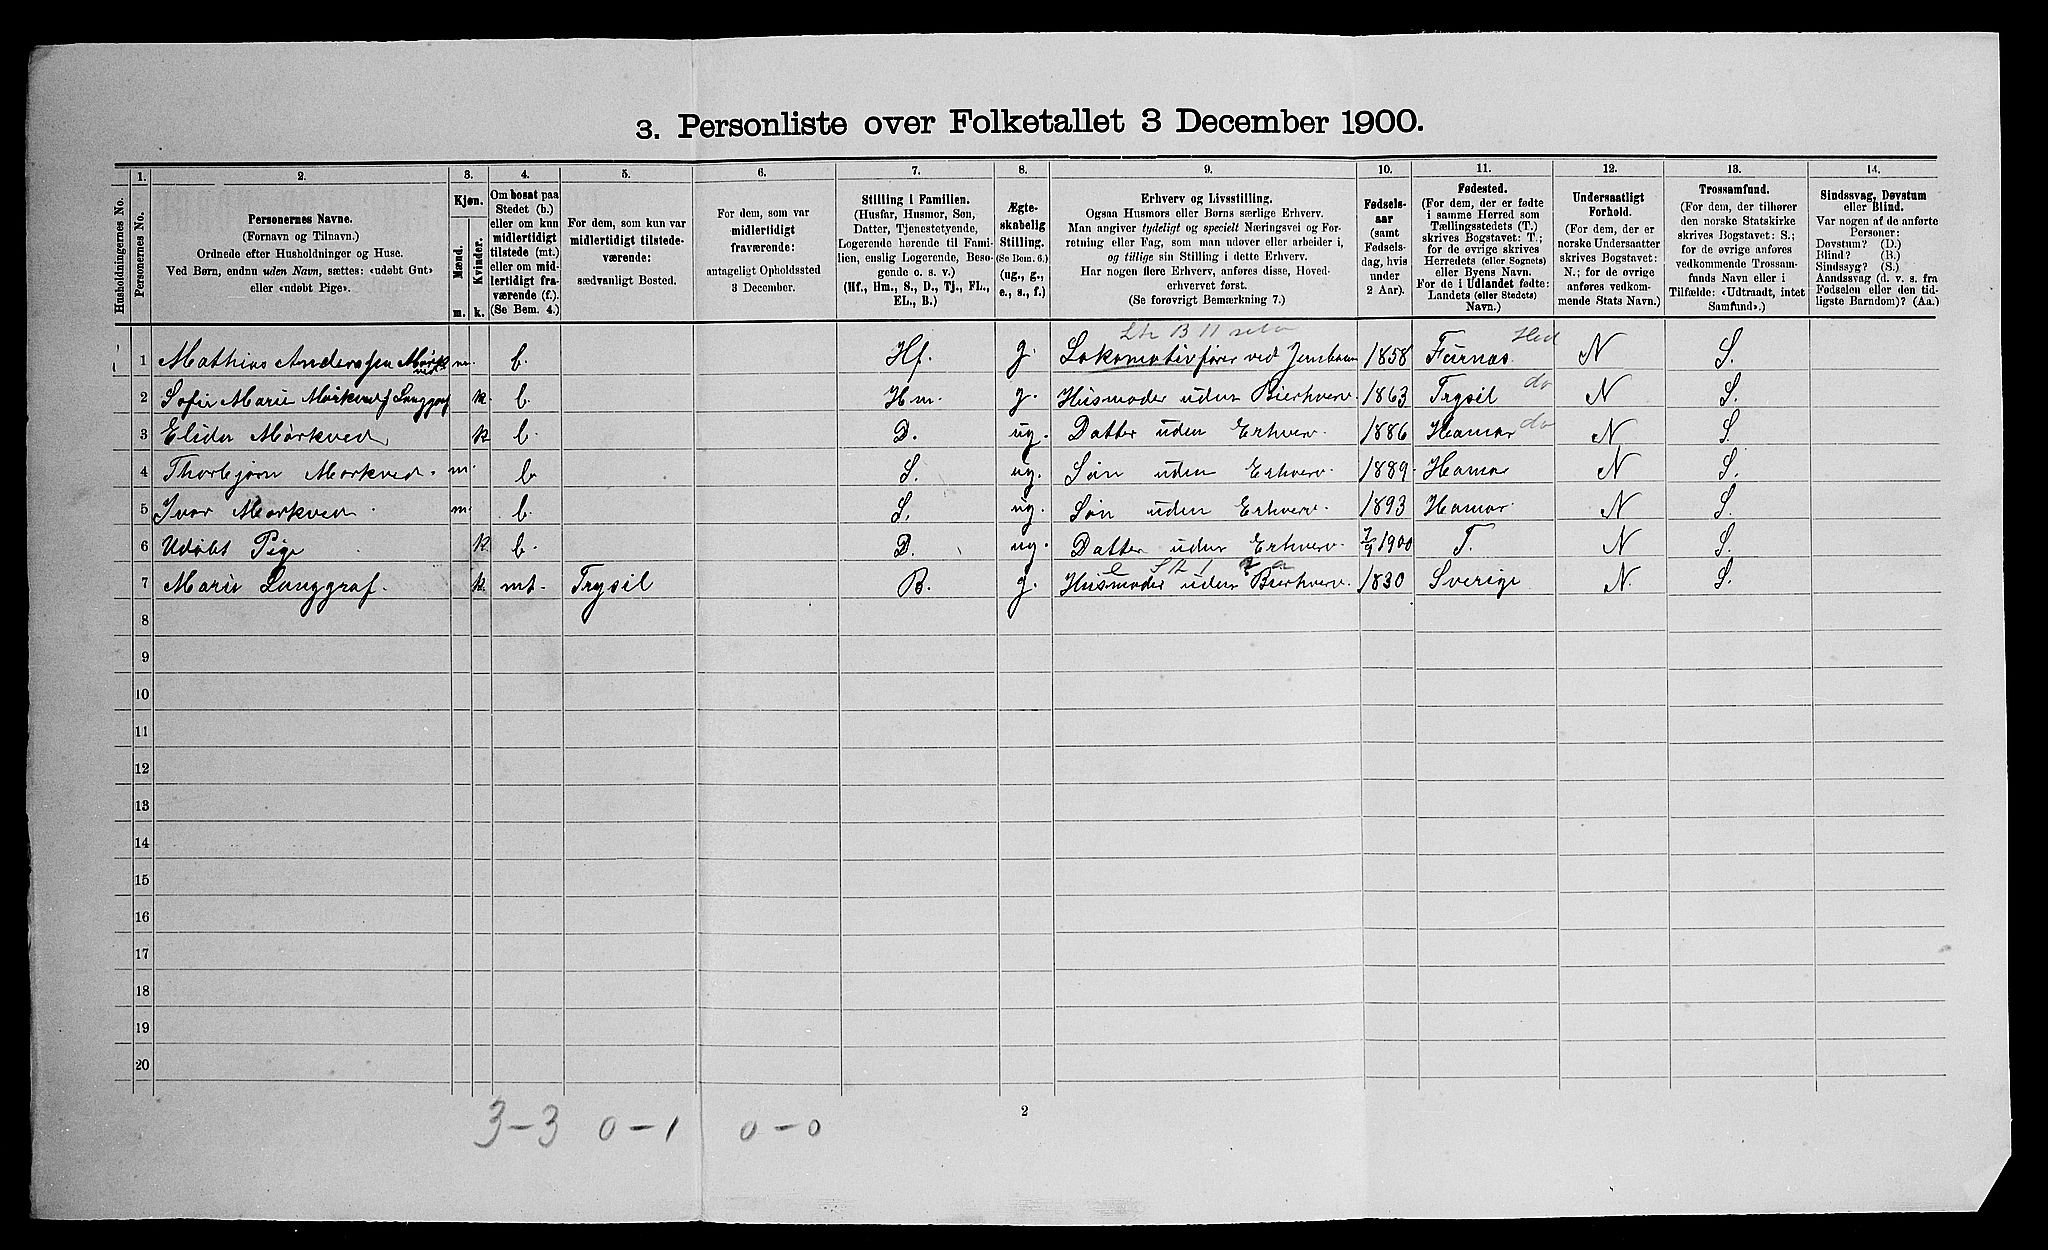 3. Personliste over Folketallet 3 December 1900.
1. 2. 3. 4. 5. 6. 7. 8. 9. 10. 11. 12. 13. 14.
Husholdningernes No.
Personernes No.
Personernes Navne.
(Fornavn og Tilnavn.)
Ordnede efter Husholdninger og Huse.
Ved Børn, endnu uden Navn, sættes: «udøbt Gut»
eller «udøbt Pige».
Kjøn.
Mænd.
Kvinder.
m. k.
Om bosat paa
Stedet (b.)
eller om kun
midlertidigt
tilstede (mt.)
eller om mid-
lertidigt fra-
værende (f.)
(Se Bem. 4.)
For dem, som kun var
midlertidigt tilstede-
værende:
sædvanligt Bosted.
For dem, som var
midlertidigt
fraværende:
antageligt Opholdssted
3 December.
Stilling i Familien.
(Husfar, Husmor, Søn,
Datter, Tjenestetyende,
Logerende hørende til Fami-
lien, enslig Logerende, Besø-
gende o. s. v.)
(Hf., Hm., S., D., Tj., FL.,
EL., B.)
Ægte-
skabelig
Stilling.
(Se Bem. 6.)
(ug., g.,
e., s., f.)
Erhverv og Livsstilling.
Ogsaa Husmors eller Børns særlige Erhverv.
Man angiver tydeligt og specielt Næringsvei og For-
retning eller Fag, som man udøver eller arbeider i,
og tillige sin Stilling i dette Erhverv.
Har nogen flere Erhverv, anføres disse, Hoved-
erhvervet først.
(Se forøvrigt Bemærkning 7.)
Fødsels-
aar
(samt
Fødsels-
dag, hvis
under
2 Aar).
Fødested.
(For dem, der er fødte
i samme Herred som
Tællingsstedets (T.)
skrives Bogstavet: T.;
for de øvrige skrives
Herredets (eller Sognets)
eller Byens Navn.
For de i Udlandet fødte:
Landets (eller Stedets)
Navn.)
Undersaatligt
Forhold.
(For dem, der er
norske Undersaatter
skrives Bogstavet:
N.; for de øvrige
anføres vedkom-
mende Stats Navn.)
Trossamfund.
(For dem, der tilhører
den norske Statskirke
skrives Bogstavet: S.;
for de øvrige anføres
vedkommende Trossam-
funds Navn eller i
Tilfælde: «Udtraadt, intet
Samfund».)
Sindssvag, Døvstum
eller Blind.
Var nogen af de anførte
Personer:
Døvstum? (D.)
Blind? (B.)
Sindssyg? (S.)
Aandssvag (d. v. s. fra
Fødselen eller den tid-
ligste Barndom)? (Aa.)
1 Mathias Anderssen Mørkved m. b. Hf. g. Lokomotivfører ved Jernbaen 1858 Furnæs. Hed N S.
2 Sofie Marie Mørkved f Langgraf k. b. Hm. g. Husmoder uden Bierhverv. 1863 Trysil do N S.
3 Elida Mørkved k b. D. ug. Datter uden Erhverv. 1886 Hamar do N S.
4 Thorbjørn Mørkved. m. b S. ug. Søn uden Erhverv. 1889. Hamar N S.
5 Ivar Mørkved. m. b. S. ug. Søn uden Erhverv. 1893 Hamar. N S.
6 Udøbt Pige k b. D. ug. Datter uden Erhverv. 7/9 1900 T. N S.
7 Marie Langgraf. k. mt. Trysil B. g. Husmoder uden Bierhverv. 1830 Sverige N. S.
8
9
10
11
12
13
14
15
16
17
18
19
20
3-3 0-1 0-0
2